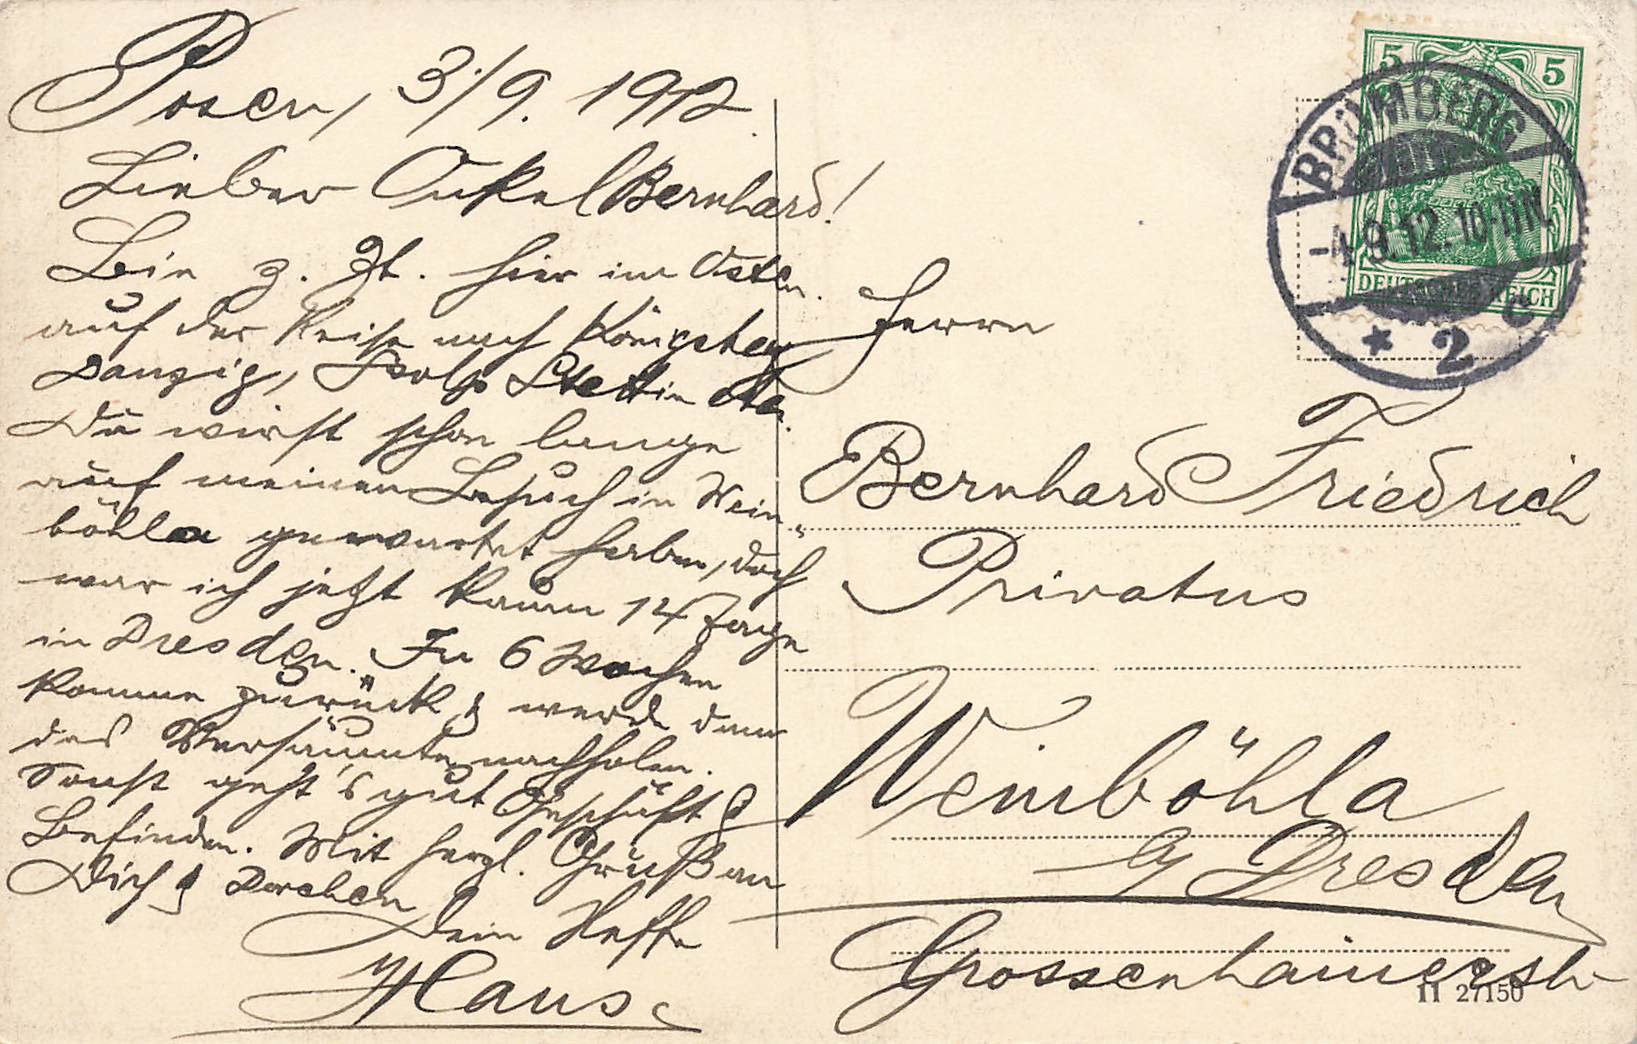 Posen, 3/9. 1912.
Lieber Onkel Bernhard!
Bin z. Zt. hier im Osten
auf der Reise nach Königsberg
Danzig, Stolp Stettin etc.
Du wirst schon lange
auf meinen Besuch in Wein-
böhla gewartet haben, doch
war ich jetzt kaum 14 Tage
in Dresden. In 6 Wochen
komme zurück & werde dann
das Versäumte nachholen.
Sonst geht's gut Geschäft &
Befinden. Mit herzl. Gruß an
Dich & Dorchen
Dein Neffe
Hans.
Herrn
Bernhard Friedrich
Privatus
Weinböhla
b/ Dresden
Grossenhainerstr
II 27150
5 5
DEUTSCHES REICH
BROMBERG
-4.9.12.10-11N.
* 2 c